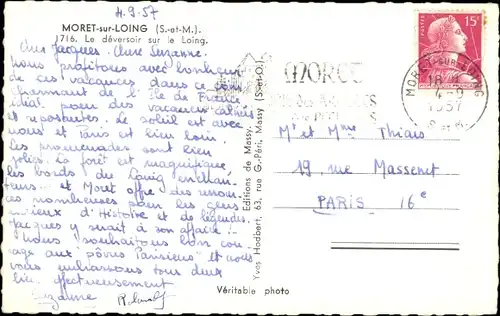 4.9.57
MORET-sur-LOING (S.-et-M.).
1716. Le déversoir sur le Loing.
Chers Jacques. Chère Suzanne.
nous profitons avec bonheur
de ces vacances dans ce coin
charmant de l'Ile de France
idéal pour des vacances calmes
et reposantes. Le soleil est avec
nous et Paris est bien loin.
Les promenades sont bien
jolies. La forêt est magnifique,
les bords du Loing enchan-
teurs... et Moret offre des ressour-
ces nombreuses pour les gens
curieux d'Histoire et de légendes.
Jacques y serait à son affaire !..
nous souhaitons bon cou-
rage aux "pôvres Parisiens" et nous
vous embrassons tous deux
bien affectueusement
Suzanne
Yvas Hodbert, 63, rue G.-Péri, Massy (S.-et-O.)
Editions de Massy.
Véritable photo
MORET
POSTES
15f
MORET-SUR-LOING
18 H
4-9
1957
Mr et Mme Thiais
19 rue Massenet
PARIS 16e